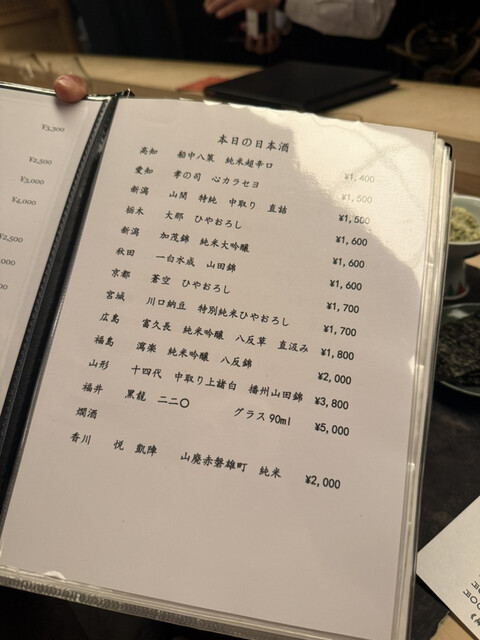 ¥3,300
¥2,500
¥3,000
¥4,000
¥2,500
本日の日本酒
高知 船中八策 純米超辛口 ¥1,400
愛知 孝の司 心カラセヨ ¥1,500
新潟 山間 特純 中取り 直詰 ¥1,500
栃木 大那 ひやおろし ¥1,600
新潟 加茂錦 純米大吟醸 ¥1,600
秋田 一白水成 山田錦 ¥1,600
京都 蒼空 ひやおろし ¥1,700
宮城 川口納豆 特別純米ひやおろし ¥1,700
広島 富久長 純米吟醸 八反草 直汲み ¥1,800
福島 寫楽 純米吟醸 八反錦 ¥2,000
山形 十四代 中取り上諸白 播州山田錦 ¥3,800
福井 黒龍 二二〇 グラス90ml ¥5,000
燗酒
香川 悦 凱陣 山廃赤磐雄町 純米 ¥2,000